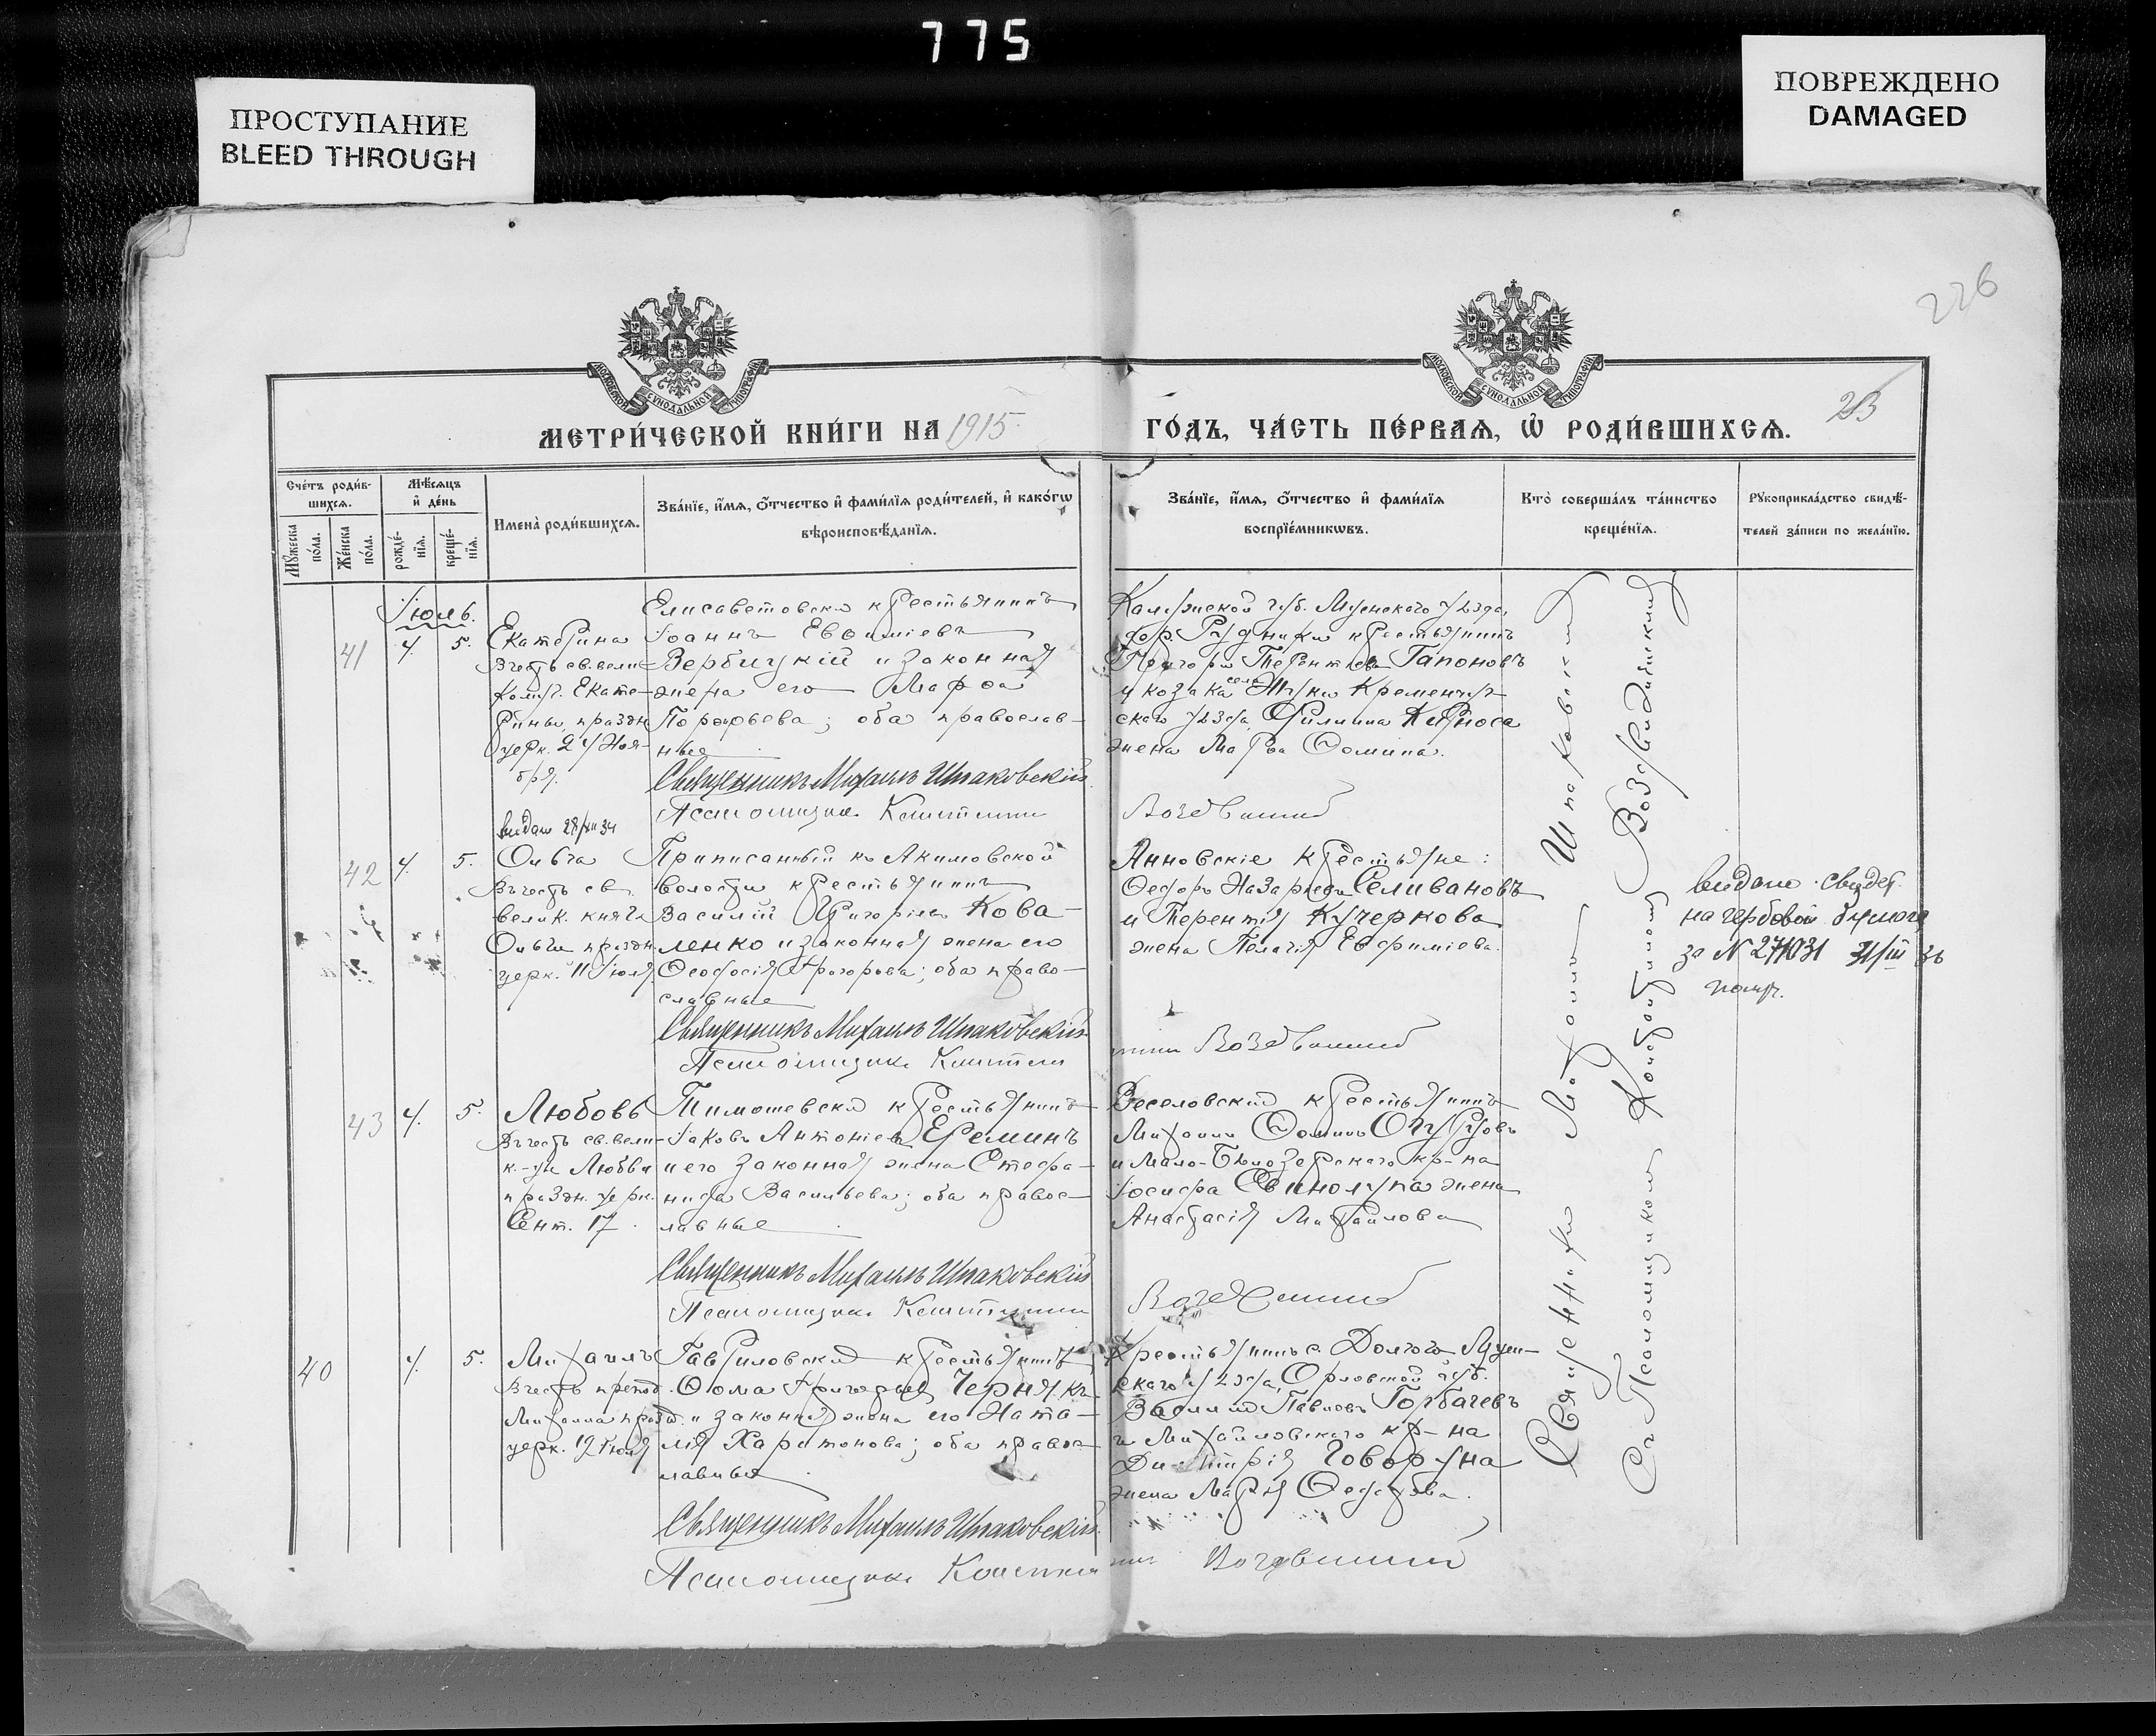 775
ПРОСТУПАНИЕ
BLEED THROUGH
ПОВРЕЖДЕНО
DAMAGED
226
МОСКОВСКОЙ СѴНОДАЛЬНОЙ ТИПОГРАФІИ
МОСКОВСКОЙ СѴНОДАЛЬНОЙ ТИПОГРАФІИ
МЕТРИ́ЧЕСКОЙ КНИ́ГИ НА 1915
ГО́ДЪ, ЧА́СТЬ ПЕ́РВАѦ, Ѿ РОДИ́ВШИХСѦ.
23
Сче́тъ роди́в-
шихсѧ.
Мѣ́сѧцъ
и҆ де́нь
Мꙋ́жеска
по́ла.
Же́нска
по́ла.
рожде́-
нїѧ.
креще́-
нїѧ.
Имена̀ роди́вшихсѧ.
Зва́нїе, и҆́мѧ, о҆́тчество и҆ фами́лїѧ роди́телей, и҆ како́гѡ
вѣроисповѣ́данїѧ.
Зва́нїе, и҆́мѧ, о҆́тчество и҆ фами́лїѧ
воспрїе́мникѡвъ.
Кто̀ соверша́лъ та́инство
креще́нїѧ.
Рꙋкоприкла́дство свидѣ́-
телей за́писи по жела́нїю.
Іюль.
41
4.
5.
Екатерина
Въ честь св. вели-
комуч. Екате-
рины праздн
церк. 24 Ноя-
бря.
Елисаветовскій крестьянинъ
Іоаннъ Евѳиміевъ
Вербицкій и законная
жена его Марѳа
Порфирьева; оба православ-
ные
Священникъ Михаилъ Шпаковскій
Псаломщикъ
Калужской губ. Мценского уѣзда,
крестьянинъ
Григорій Терентіевъ Гапоновъ
и козака села Жуки Кременчуг-
скаго уѣзда Филиппа Кирноса
жена Марѳа Ѳомина.
выдано
42
4.
5.
Ольга
Въ честь св.
велик. княг.
Ольги праздн.
церк. 11 Іюля.
Приписанный къ Акимовской
волости крестьянинъ
Василій Григоріевъ Кова-
ленко и законная жена его
Ѳеодосія Григорьева; оба право-
славные
Священникъ Михаилъ Шпаковскій
Псаломщикъ
Анновскіе крестьяне:
Ѳеодоръ Назаріевъ Селивановъ
и Терентія Кучеркова
жена Пелагія Евфиміева.
выдано свидет.
на гербовой бумаге
за N 271031
43
4.
5.
Любовь
Въ честь св. вели-
к-цы Любви
праздн. церк.
Сент. 17.
Тимошевскій крестьянинъ
Іаковъ Антоніевъ Ереминъ
и его законная жена Стефа-
нида Васильева; оба правос-
лавные
Священникъ Михаилъ Шпаковскій
Псаломщикъ
Веселовскій крестьянинъ
Михаилъ Ѳоминъ Огурцовъ
и Мало-Бѣлозерскаго кр-на
Іосифа Свинолупа жена
Анастасія Михайлова
40
4.
5.
Михаилъ
Въ честь препод.
Михаила праздн.
церк. 12 Іюля
Гавриловскій крестьянинъ
Ѳома Григорьевъ Чернякъ
и законная жена его Ната-
лія Харитонова; оба правос-
лавные
Священникъ Михаилъ Шпаковскій
Псаломщикъ
Крестьянинъ с. Долгого Мцен-
скаго уѣзда, Орловской губ.
Василій Павловъ Горбачевъ
и Михайловского кр-на
Димитрія Говоруна
жена Марія
Священникъ Михаилъ Шпаковскій
Съ Псаломщикомъ Воздвиженскій